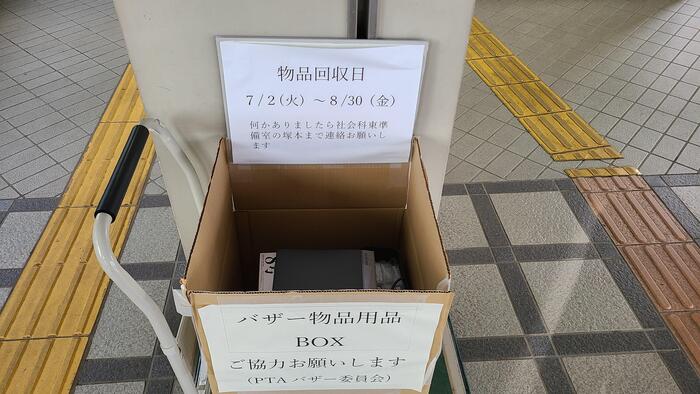 物品回収日
7/2(火)～8/30(金)
何かありましたら社会科東準
備室の塚本まで連絡お願いし
ます
バザー物品用品
BOX
ご協力お願いします
(PTAバザー委員会)